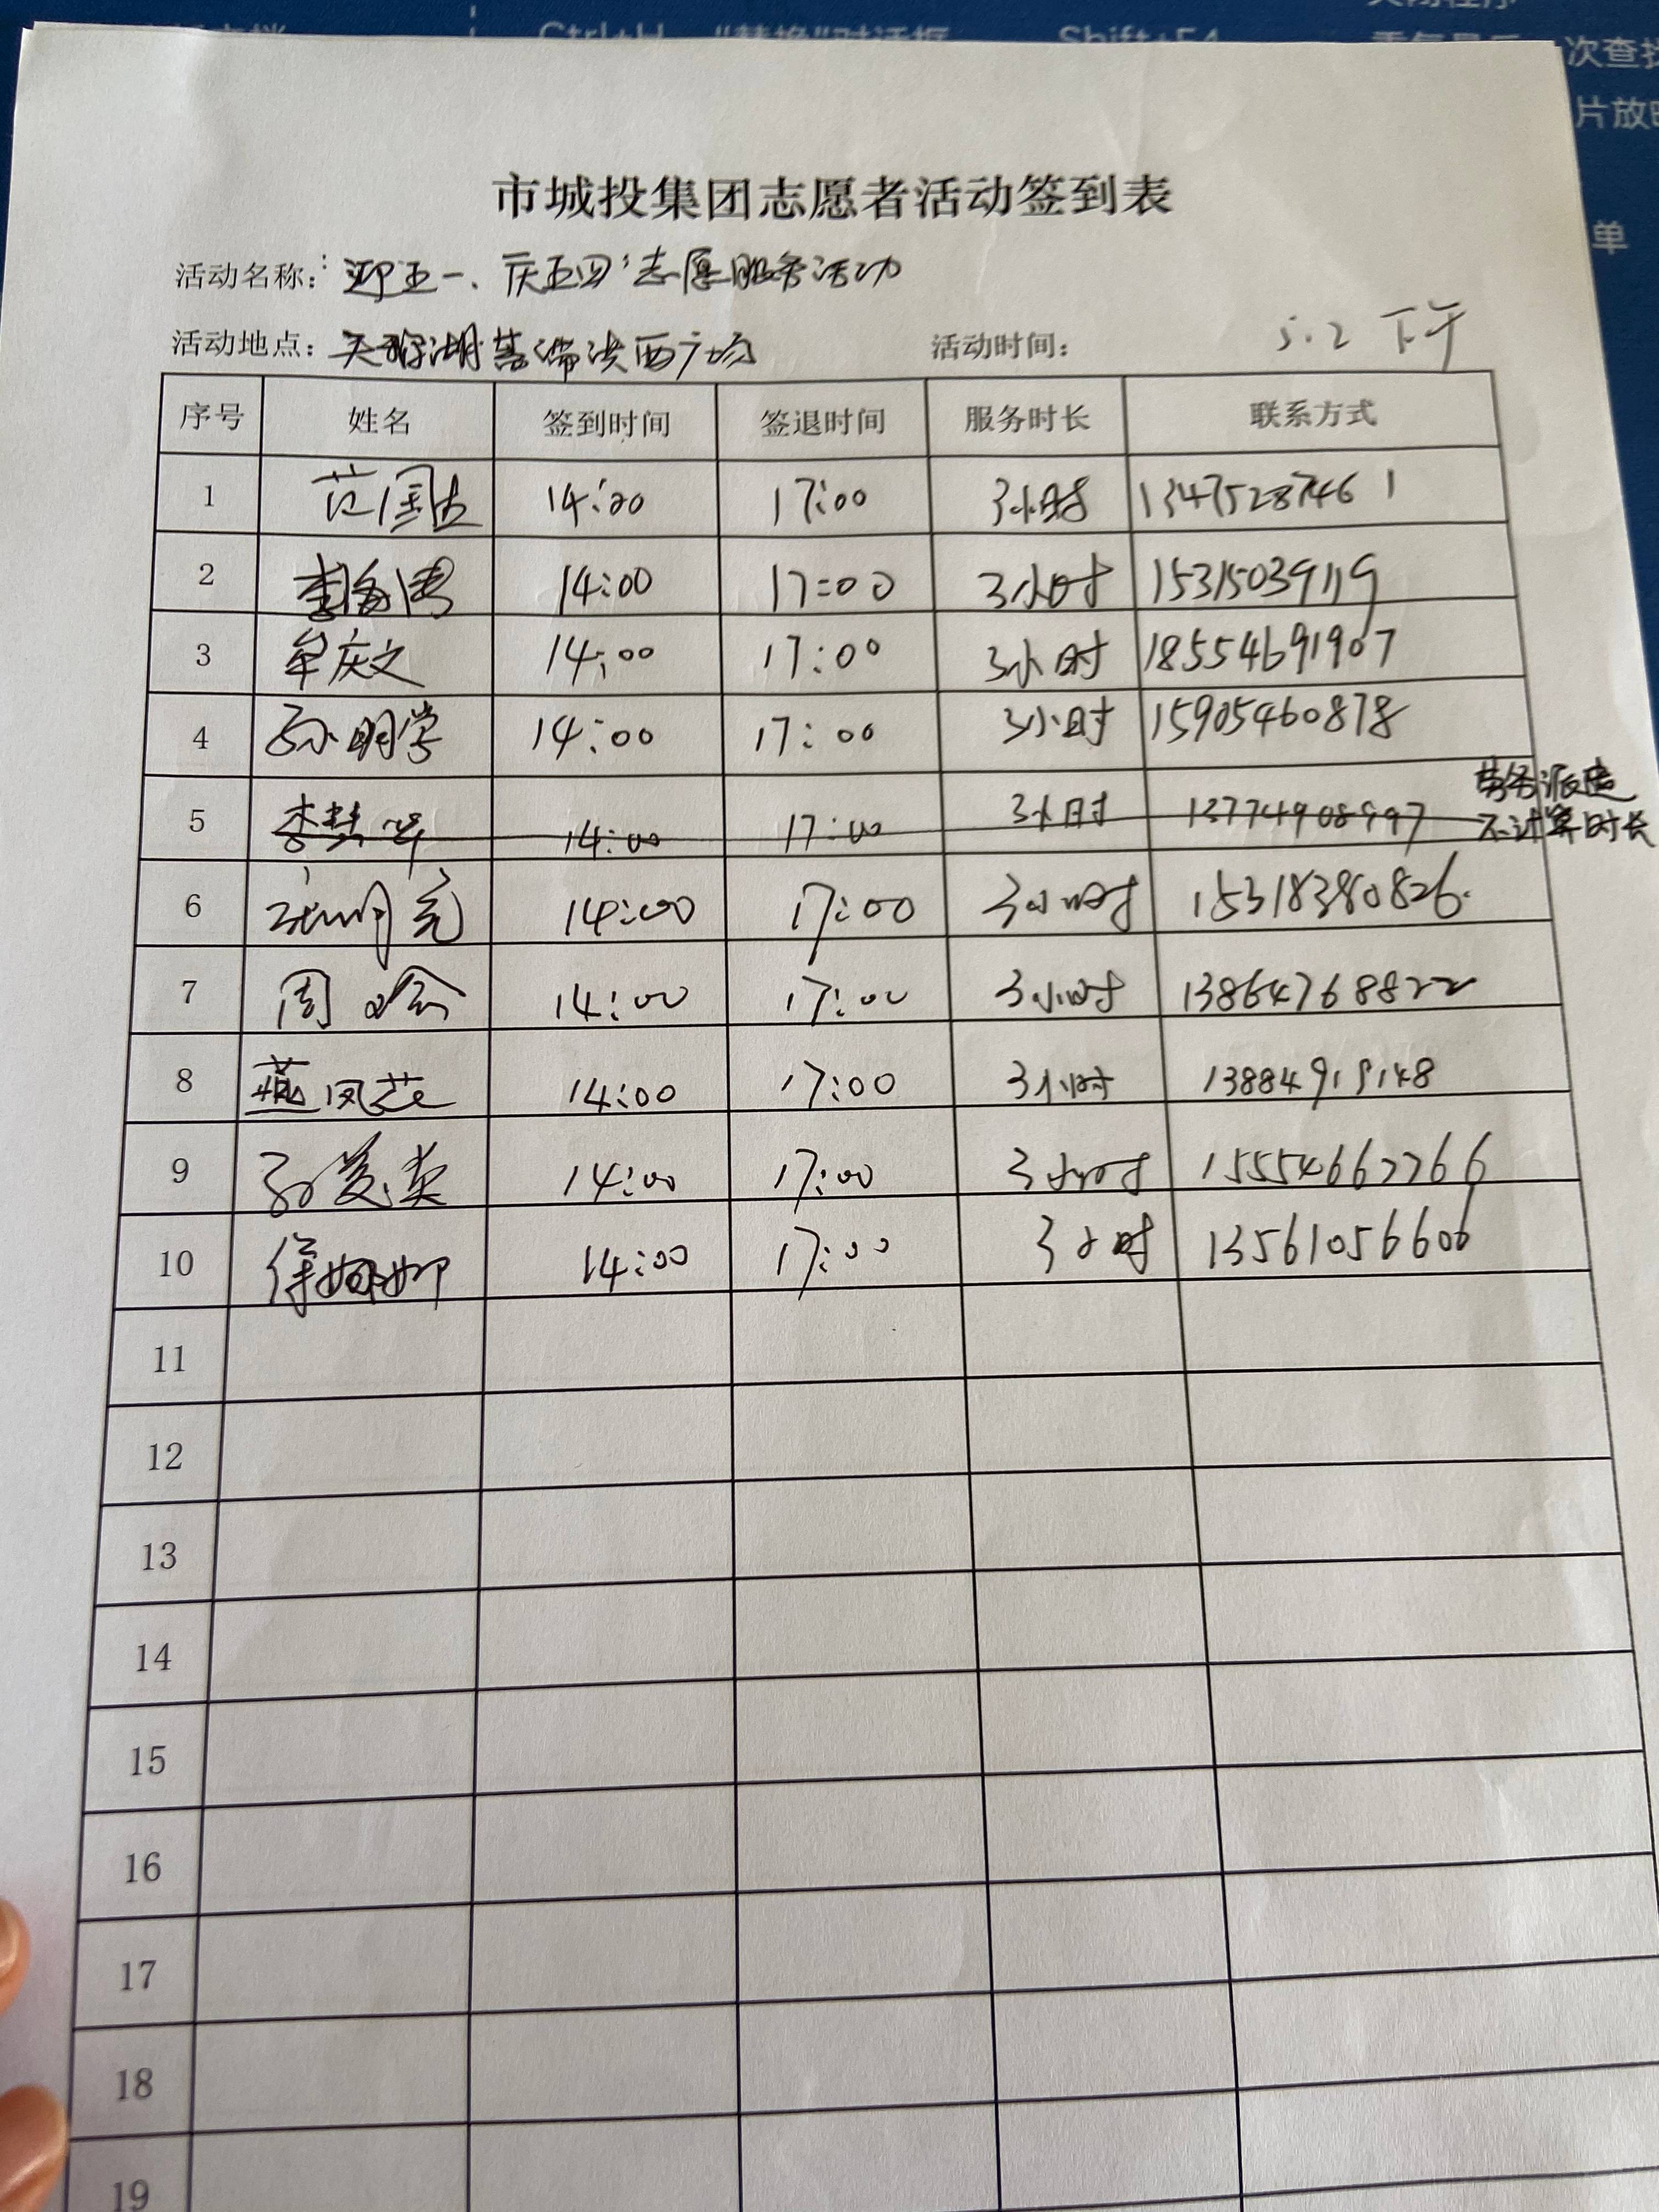 Ctrl+H "替换"对话框 Shift+F4
次查找
片放映
单
市城投集团志愿者活动签到表
活动名称："迎五一、庆五四"志愿服务活动
活动地点：天鹅湖 西广场 活动时间： 5.2 下午
序号 姓名 签到时间 签退时间 服务时长 联系方式
1 范国 14:00 17:00 3小时 13475287461
2 李 14:00 17:00 3小时 15315039119
3 牟庆文 14:00 17:00 3小时 18554691907
4 孙明学 14:00 17:00 3小时 15905460878
劳务派遣
5 李慧华 14:00 17:00 3小时 13774908997 不计算时长
6 14:00 17:00 3小时 15318380826
7 周 14:00 17:00 3小时 13864768822
8 燕凤芝 14:00 17:00 3小时 13884919148
9 孙爱英 14:00 17:00 3小时 15554662266
10 徐娜娜 14:00 17:00 3小时 13561056606
11
12
13
14
15
16
17
18
19